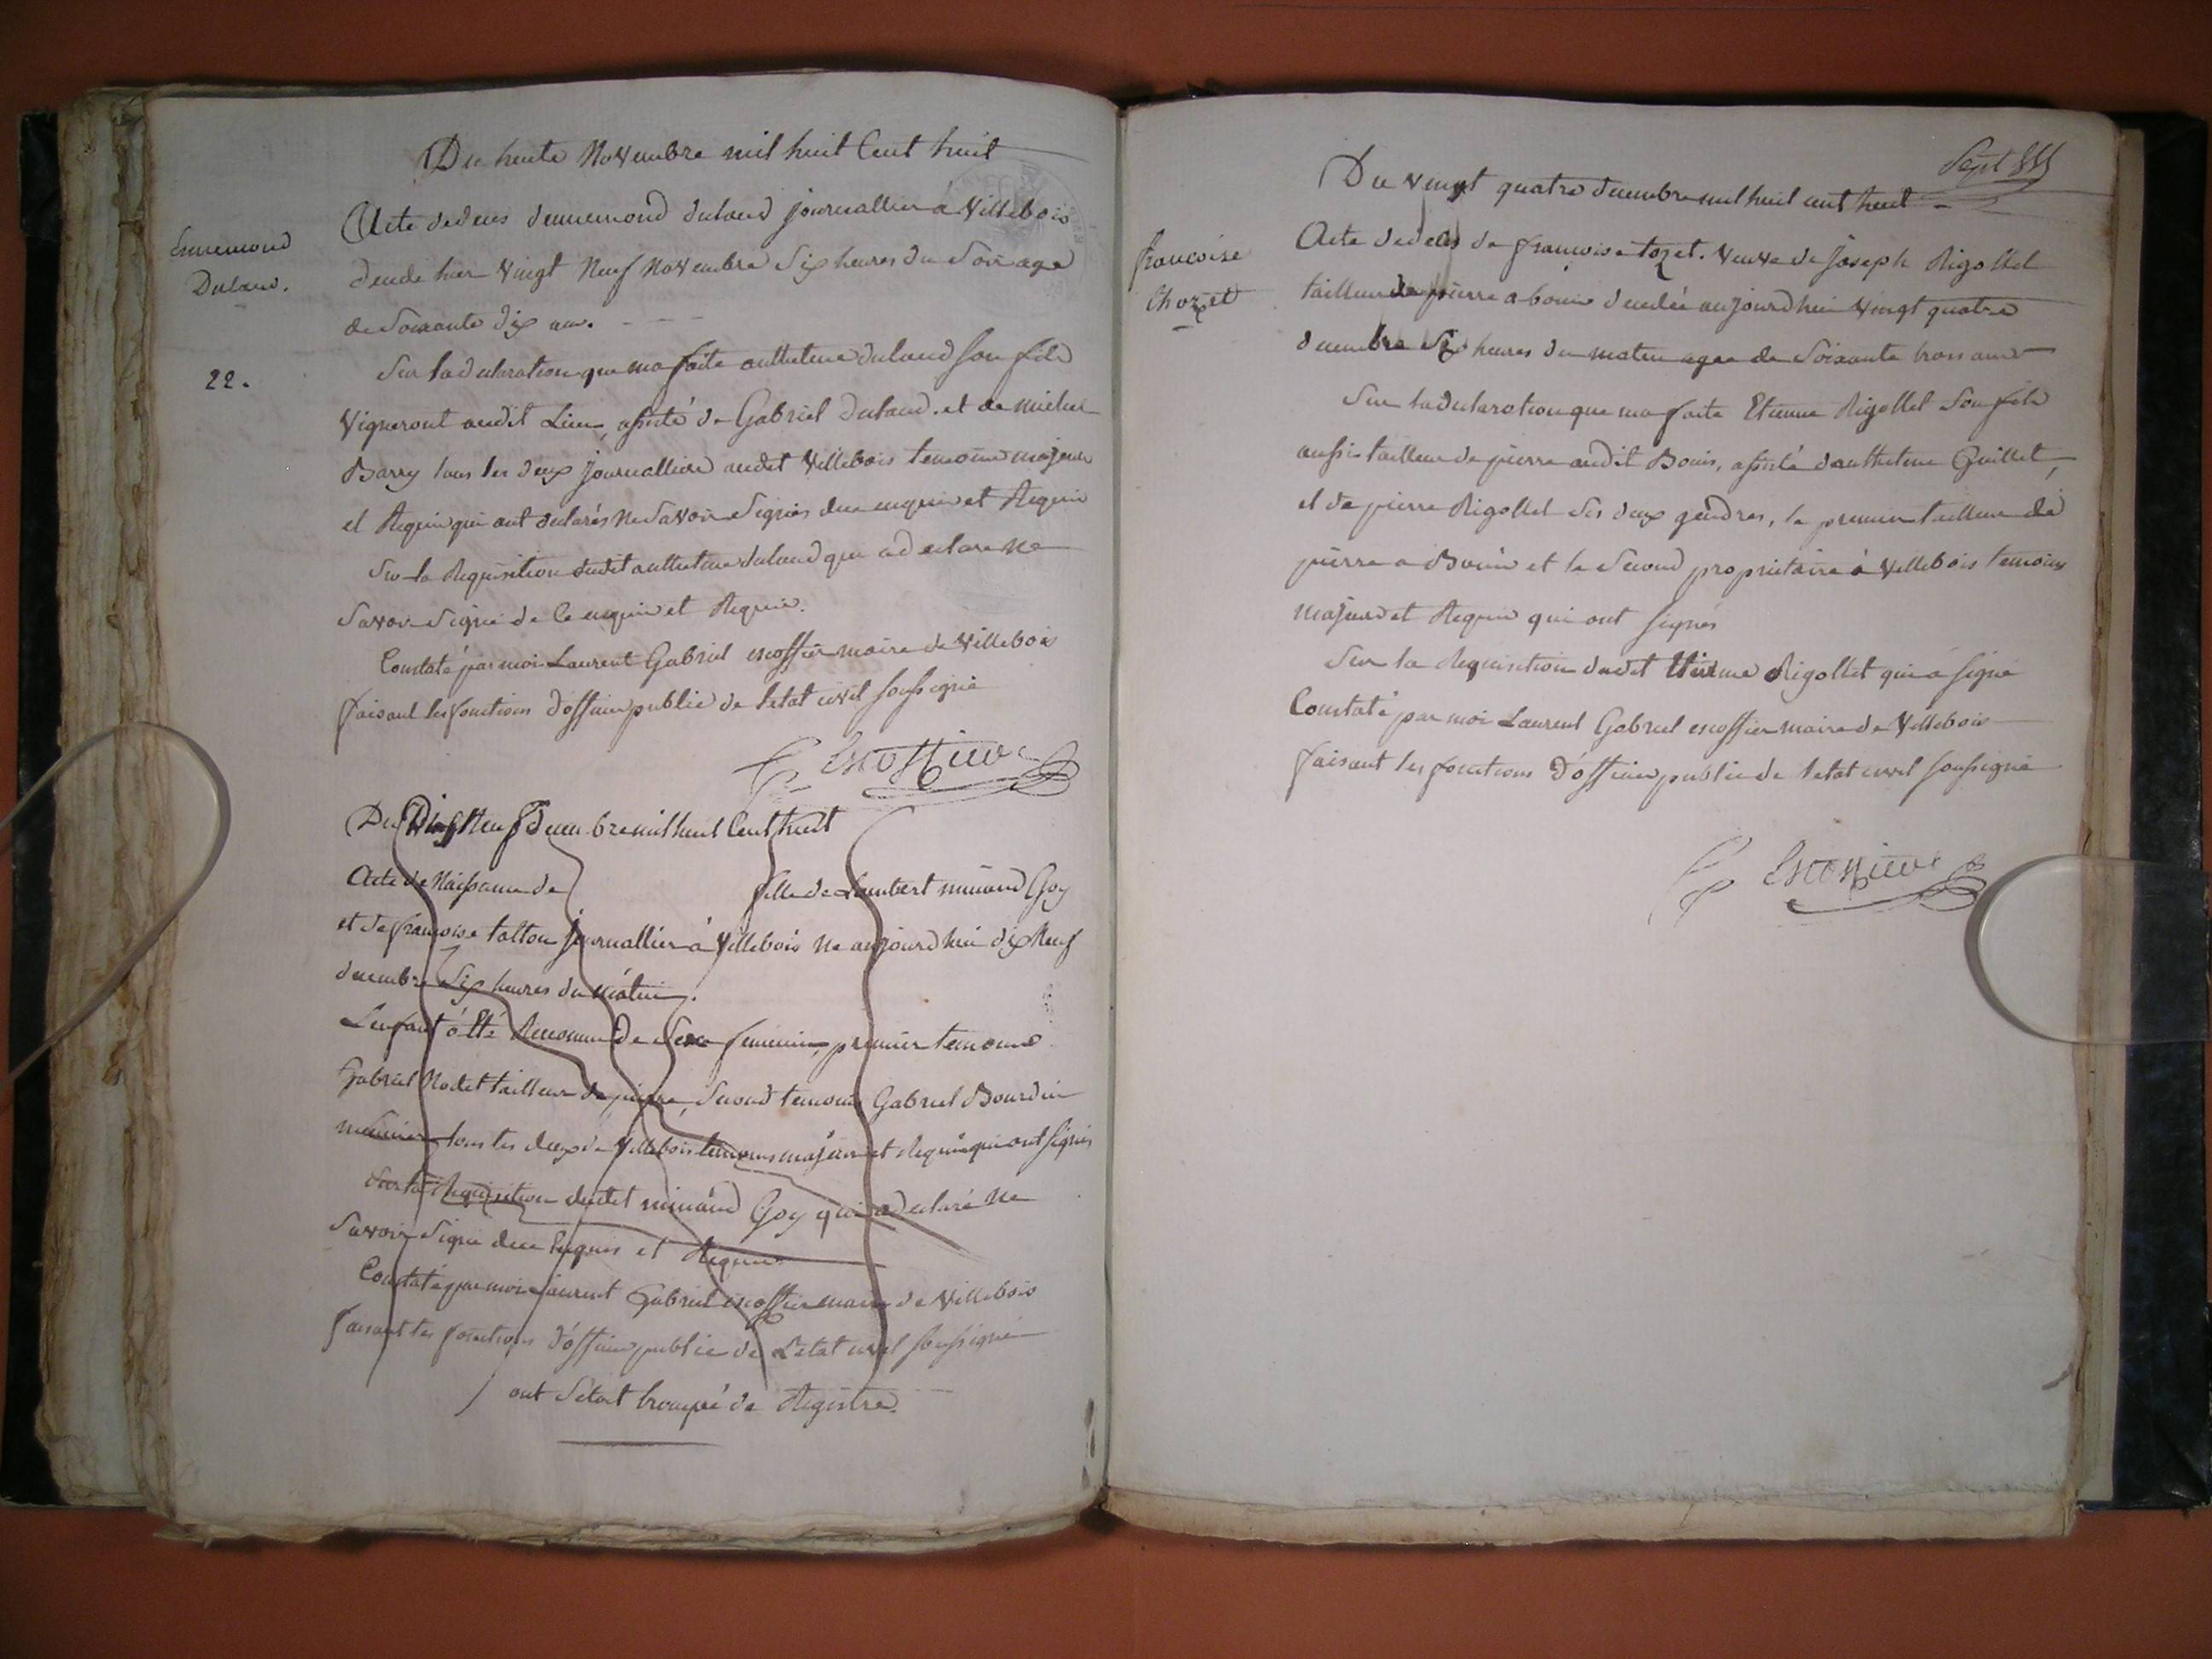 Du trente Novembre mil huit Cent huit
Ennemond
Dulaud.
22.
Acte de deces dennemond dulaud journallier à Villebois
decedé hier Vingt Neuf Novembre Six heures du Soir age
de Soixante dix ans.
Sur la declaration que ma faite anthelme dulaud Son fils
Vigneront audit Lieu, assisté de Gabriel dulaud. et de michel
Barry tous les deux journalliers audit Villebois temoins majeurs
et Requis qui ont declarés ne Savoir Signés de ce enquis et Requis
Sur la Requisition dudit anthelme dulaud qui a declaré ne
Savoir Signé de Ce enquis et Requis.
Constaté par moi Laurent Gabriel escoffier maire de Villebois
faisant les fonctions d'officier public de letat civil Soussigné
Escoffier
Du Dix Neuf decembre mil huit Cent huit
Acte de Naissance de fille de Lambert minand Goy
et de françoise tallon journallier à Villebois ne aujourdhui dix Neuf
decembre Six heures du matin.
Lenfant á Eté Reconnu de Sexe feminin, premier temoins
Gabriel Nodet tailleur de pierre, Second temoins Gabriel Bourdin
meunier tous les deux de Villebois temoins majeurs et Requis qui ont Signés
Sur la Requisition dudit minand Goy qui a declaré ne
Savoir Signé de ce Enquis et Requis
Constaté par moi Laurent Gabriel escoffier maire de Villebois
faisant les fonctions d'officier public de Letat civil Soussigné
ont Setoit trompé de Registre.
Sept
Du vingt quatre decembre mil huit cent huit
francoise
Chozet
Acte de deces de francoise tozet. veuve de Joseph Rigollet
tailleur de pierre a bouis decedée aujourdhui vingt quatre
decembre Six heures du matin agee de Soixante trois ans
Sur la declaration que ma faite Etienne Rigollet Son fils
aussi tailleur de pierre audit Bouis, assisté danthelme Guillet,
et de pierre Rigollet Ses deux gendres, le premier tailleur de
pierre a Bouis et le Second proprietaire à Villebois temoins
majeurs et Requis qui ont Signés
Sur la Requisition dudit Etienne Rigollet qui a Signé
Constaté par moi Laurent Gabriel escoffier maire de Villebois
faisant les fonctions d'officier public de letat civil Soussigné
Escoffier